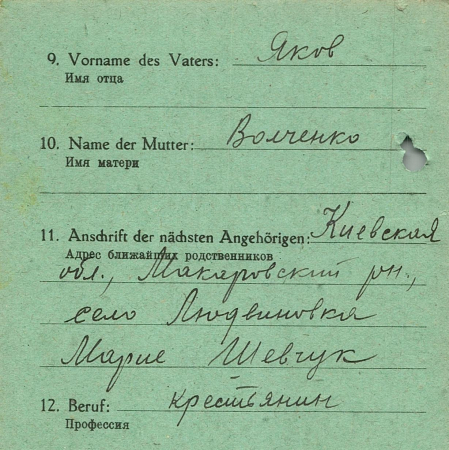 9. Vorname des Vaters: Яков
Имя отца
10. Name der Mutter: Волченко
Имя матери
11. Anschrift der nächsten Angehörigen: Киевская
Адрес ближайших родственников
обл., Макаровский рн.,
село Людвиновка
Марие Шевчук
12. Beruf: крестьянин
Профессия